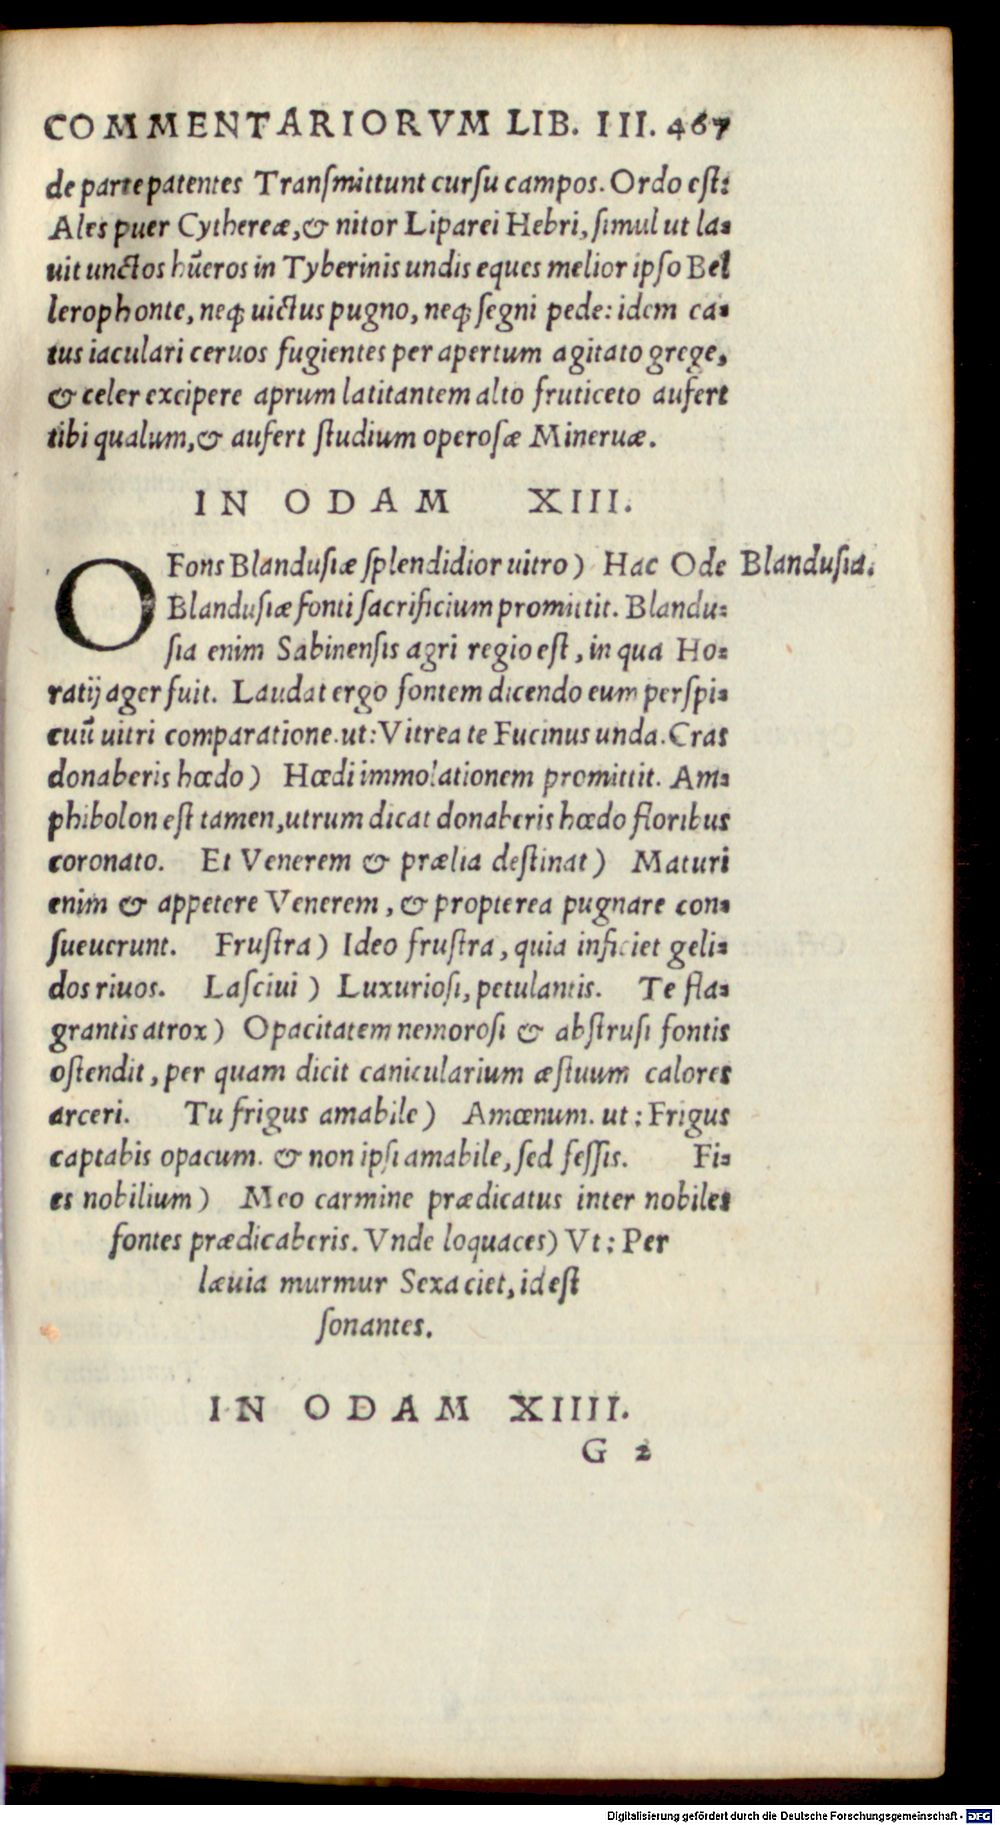 COMMENTARIORVM LIB. III. 467
de parte patentes Tranſmittunt curſu campos. Ordo eſt:
Ales puer Cythereæ, & nitor Liparei Hebri, ſimul ut la-
uit unctos hūeros in Tyberinis undis eques melior ipſo Bel
lerophonte, neq; uictus pugno, neq; ſegni pede: idem ca-
tus iaculari ceruos fugientes per apertum agitato grege,
& celer excipere aprum latitantem alto fruticeto aufert
tibi qualum, & aufert ſtudium operoſæ Mineruæ.
IN ODAM XIII.
O Fons Blanduſiæ ſplendidior uitro) Hac Ode Blanduſia.
Blanduſiæ fonti ſacrificium promittit. Blandu-
ſia enim Sabinenſis agri regio eſt, in qua Ho-
ratij ager fuit. Laudat ergo fontem dicendo eum perſpi-
cuū uitri comparatione. ut: Vitrea te Fucinus unda. Cras
donaberis hœdo) Hœdi immolationem promittit. Am-
phibolon eſt tamen, utrum dicat donaberis hœdo floribus
coronato. Et Venerem & prælia deſtinat) Maturi
enim & appetere Venerem, & propterea pugnare con-
ſueuerunt. Fruſtra) Ideo fruſtra, quia inficiet geli-
dos riuos. Laſciui) Luxurioſi, petulantis. Te fla-
grantis atrox) Opacitatem nemoroſi & abſtruſi fontis
oſtendit, per quam dicit canicularium æſtuum calores
arceri. Tu frigus amabile) Amœnum. ut: Frigus
captabis opacum. & non ipſi amabile, ſed feſſis. Fi-
es nobilium) Meo carmine prædicatus inter nobiles
fontes prædicaberis. Vnde loquaces) Vt: Per
læuia murmur Sexa ciet, id eſt
ſonantes.
IN ODAM XIIII.
G 2
Digitalisierung gefördert durch die Deutsche Forschungsgemeinschaft - DFG